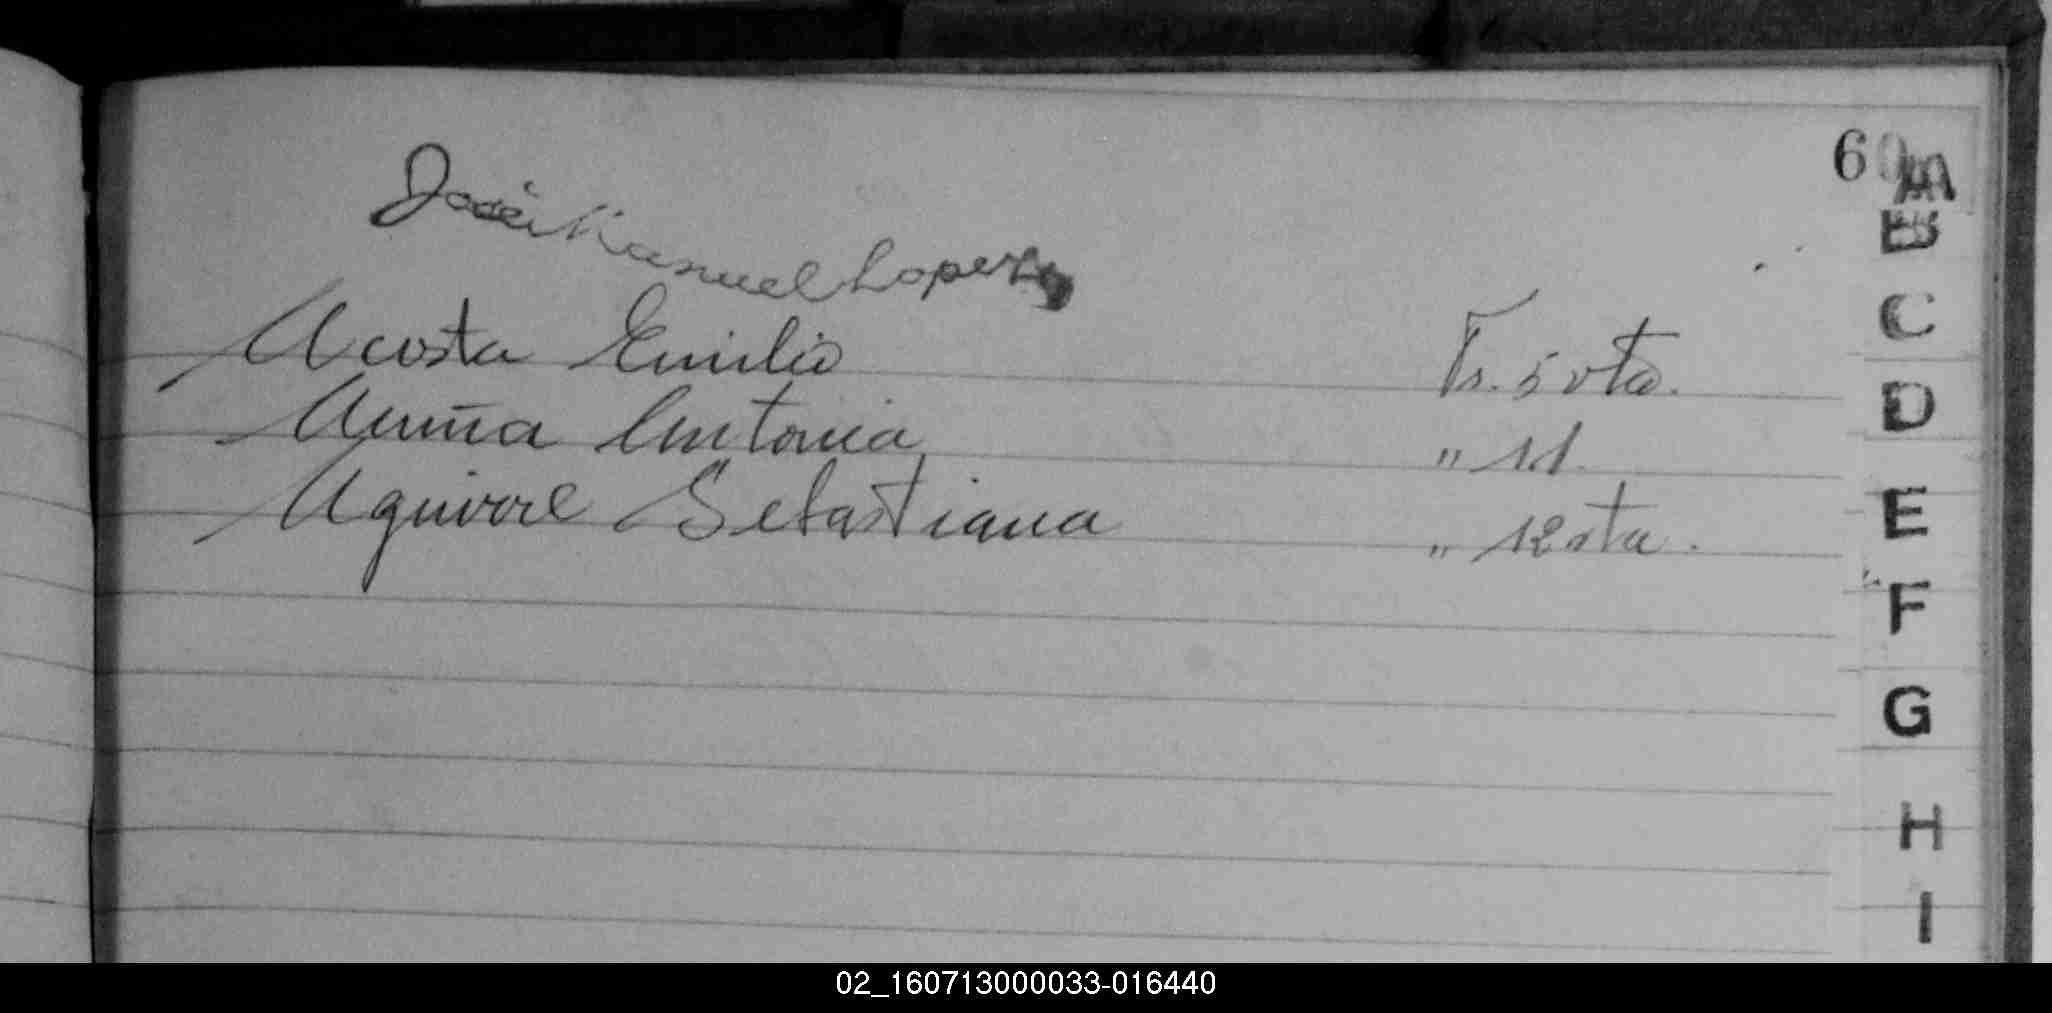 60
José Manuel Lopez
Acosta Emilio Fs. 5 vta.
Acuña Antonia " 11.
Aguirre Sebastiana " 12 vta.
A
B
C
D
E
F
G
H
I
02_160713000033-016440